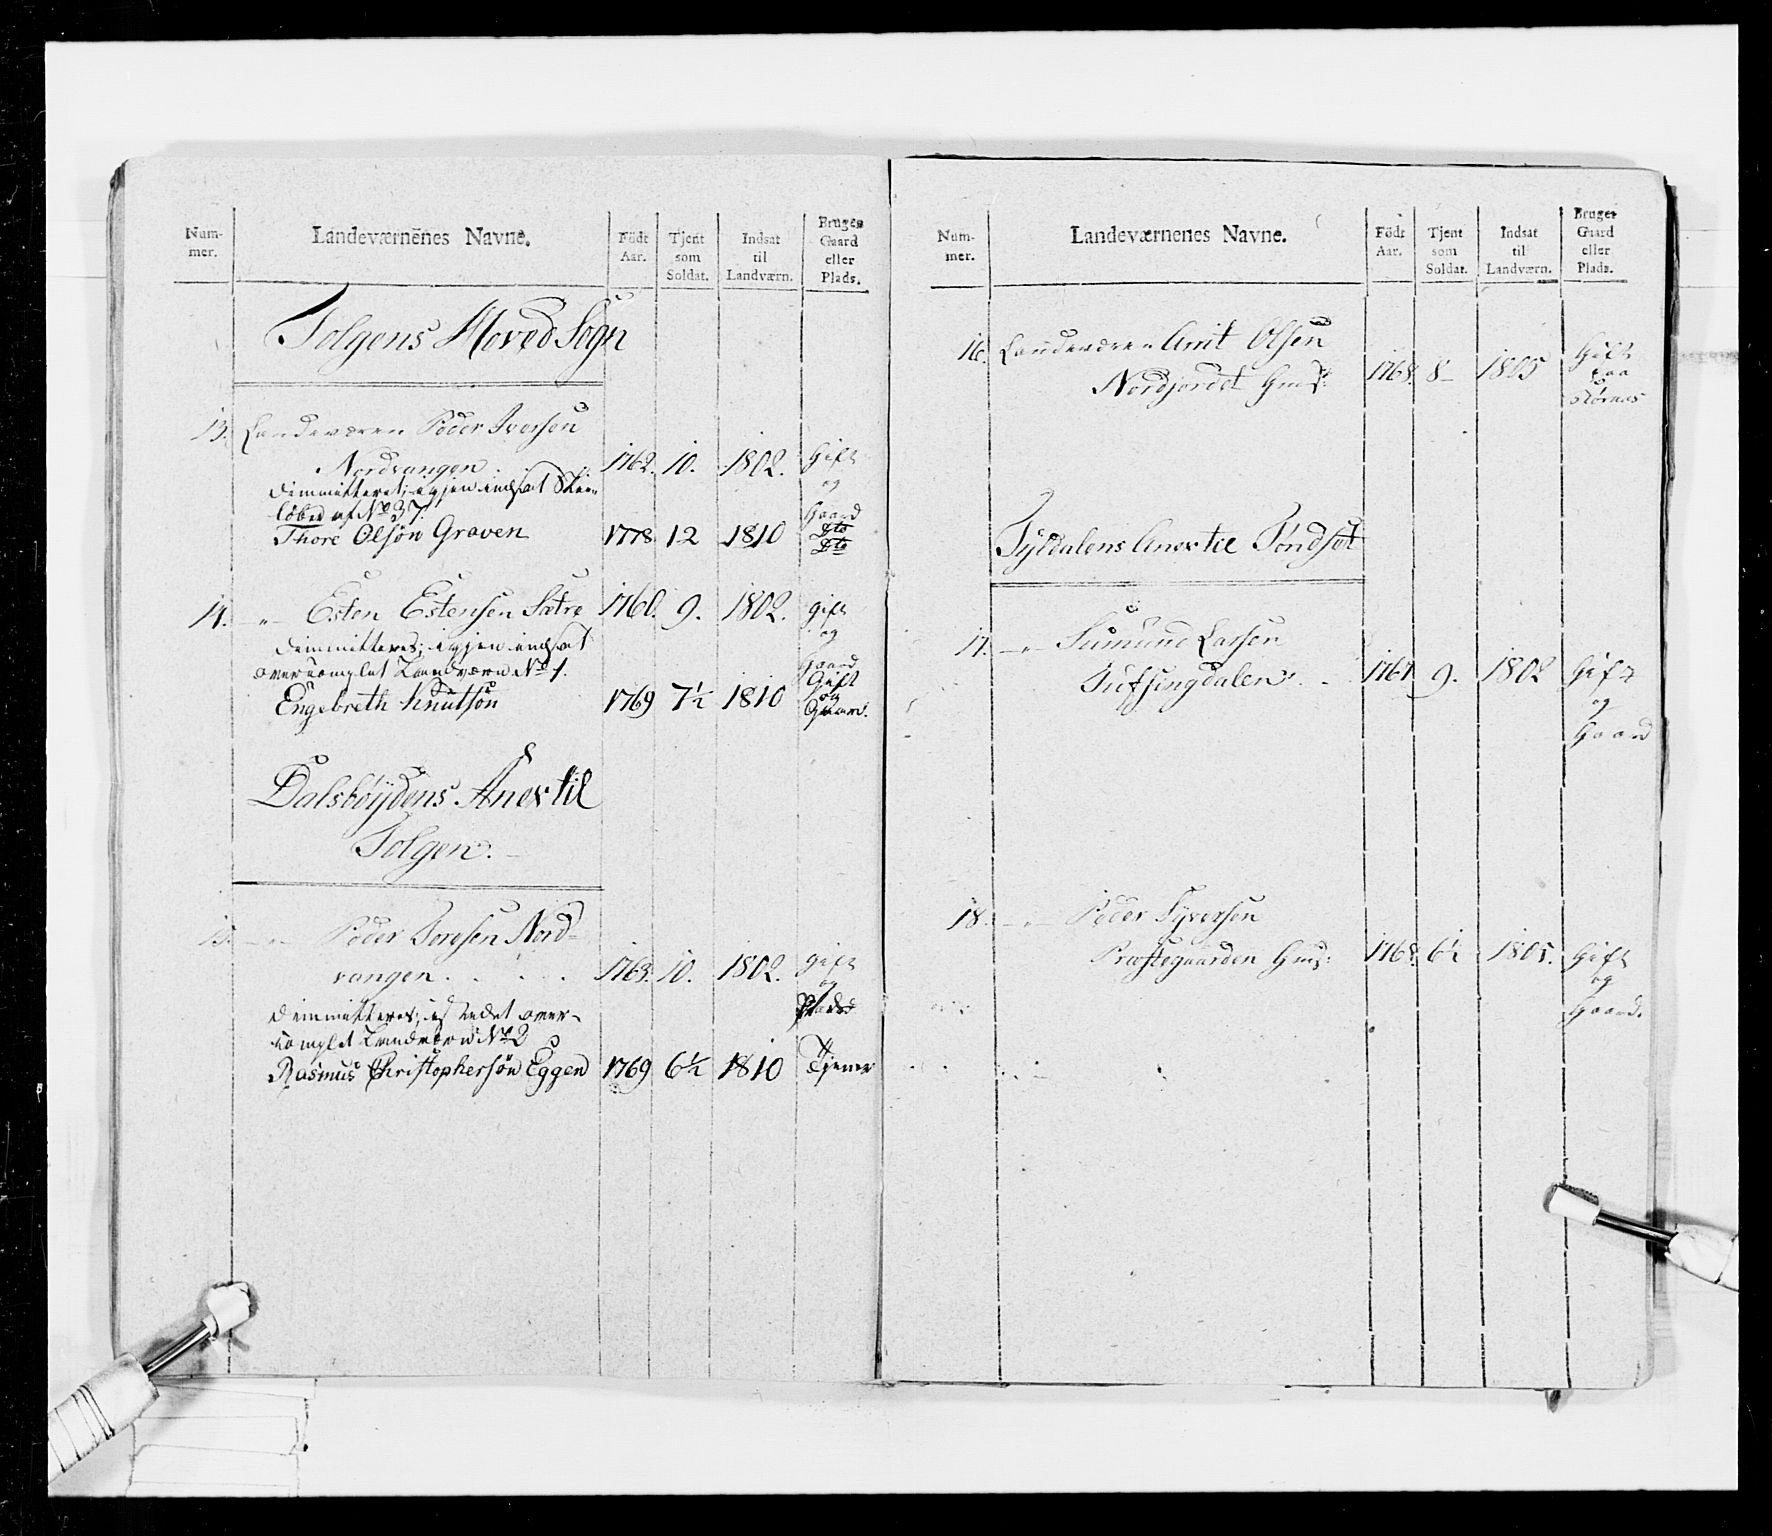 Num-
mer.
Landeværnenes Navne.
Född
Aar.
Tjent
som
Soldat.
Indsat
til
Landværn.
Bruger
Gaard
eller
Plads.
Tolgens Hoved Sogn
13. Landeværn Peder Iversen
Nordvangen 1762. 10. 1802. Gift
og
Gaard
dimmitteret; igjen indsat Skie-
löber af No 37.
Thore Olsön Graven 1778. 12 1810 Dto
Dto
14. -"- Esten Estensen Sætre 1760. 9. 1802. gift
og
Gaard
dimmitteres; igjen indsat
overcomplet Landværn No 1.
Engebreth Knutsön 1769 7½ 1810 Gift
og
Gaard.
Dalsböijdens Anex til
Tolgen.
15. -"- Peder Toresen Nord-
vangen . . . . 1763. 10. 1802. gift
og
dimmitteres; istedet over-
complet Landværn No 2
Rasmus Christophersön Eggen 1769 6½ 1810 Tjener
Num-
mer.
Landeværnenes Navne.
Född
Aar.
Tjent
som
Soldat.
Indsat
til
Landværn.
Bruger
Gaard
eller
Plads.
16. Landeværn Amt Olsen
Nordjordet 1768. 8- 1805 Gift
paa
Tyldalens Anex til Töndset
17. -"- Simund Larsen
Tufsingdalen . . 1767 9. 1802 Gift
og
Gaard
18. -"- Peder Syversen
Præstegaarden 1768. 6½ 1805. Gift
og
Gaard.